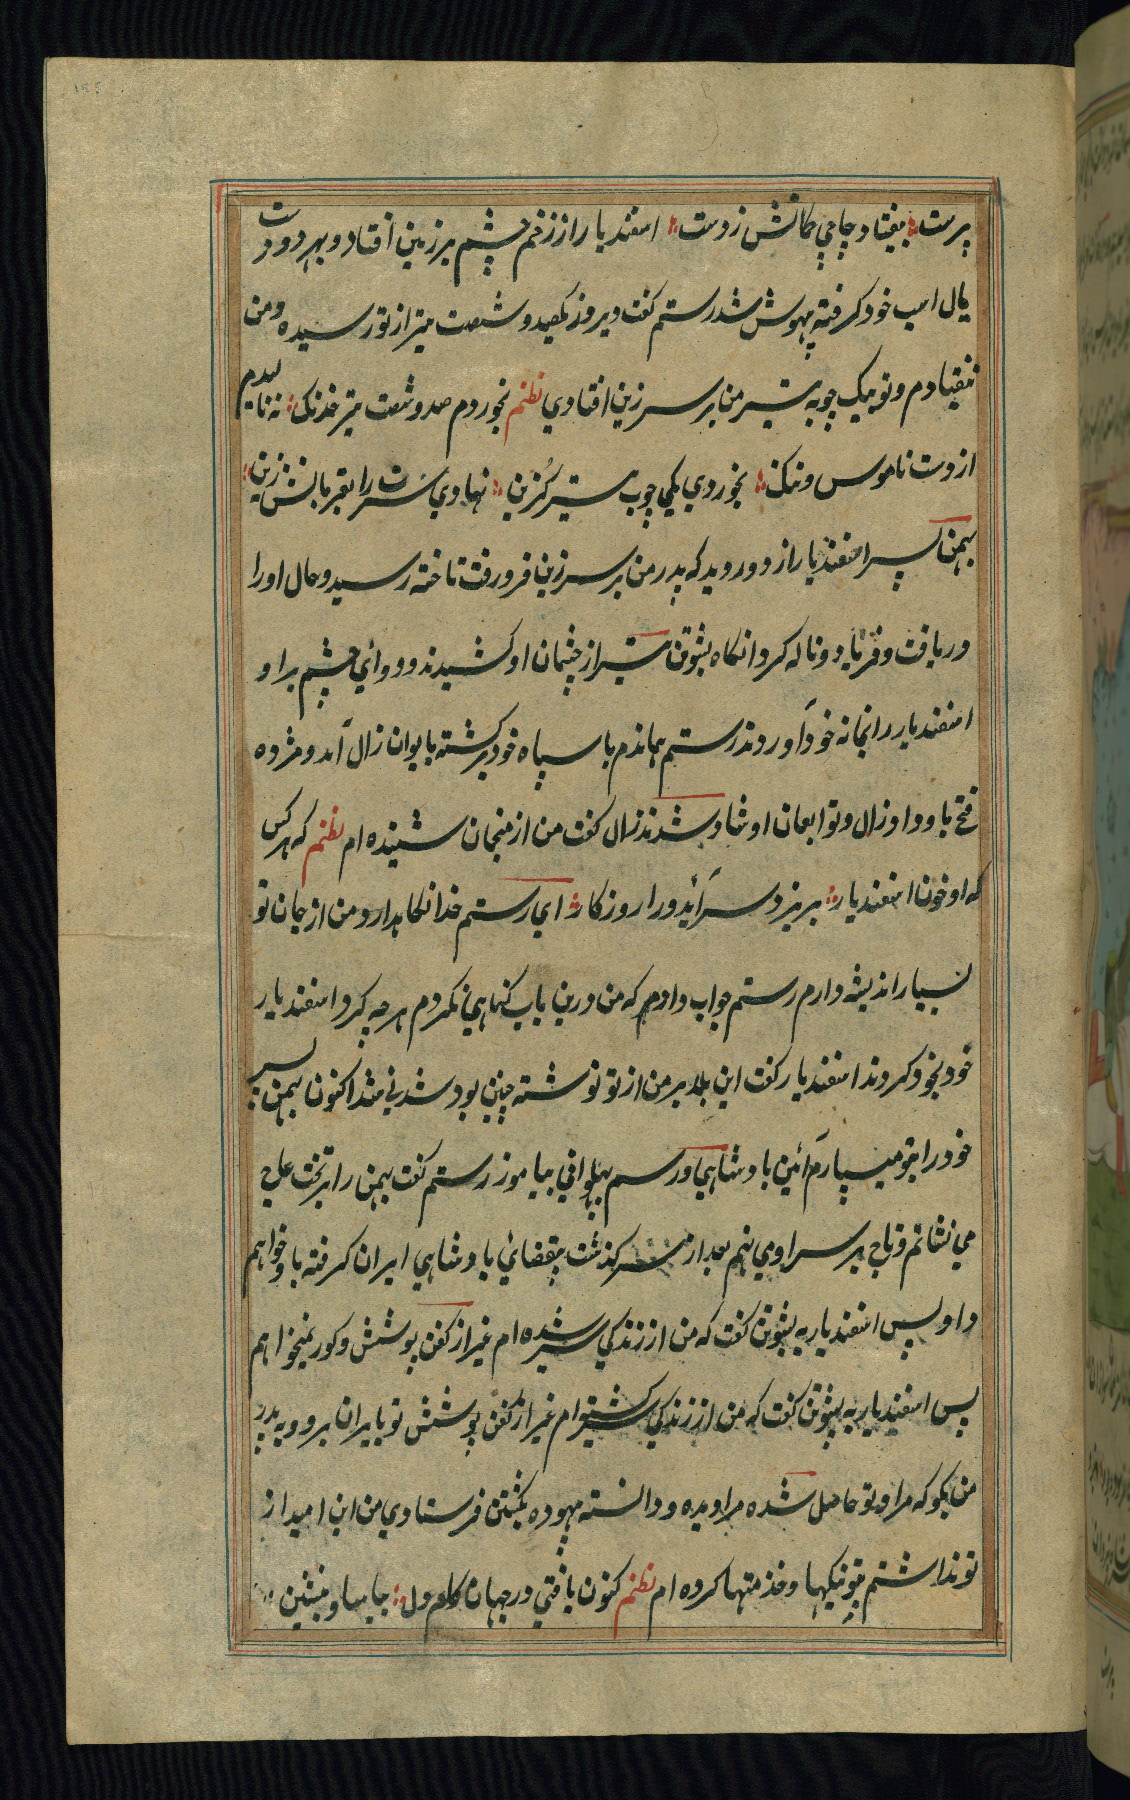 پرست ؛ بیفتاد چاچي کمانش زدست ؛ اسفندیار از زخم چشم بر زمین افتاد و بهر دو دست
یال اسپ خود کرفته بیهوش شد رستم کفت دیروز یکصد و شصت تیر از تو رسیده و من
نیفتادم و تو بیک چوبه تیر من بر سر زین افتادي نظم بخوردم صد و شصت تیر خدنک ؛ نه نالیدم
از دست ناموس و ننک ؛ بخوردي یکي چوب تیر کزین ؛ نهادي سرت را بقربانش زین ؛
بهمن پسر اسفندیار از دور دید که پدر من بر سر زین فرو رفت تاخته رسید و حال او را
دریافت و فریاد و ناله کرد انکاه پشوتن تیر از چشمان او کشیدند و دوائي چشم بر او
اسفندیار را بخانه خود آوردند رستم هماندم با سپاه خود برکشته بایوان زال آمد و مژده
فتح باو داد زال و توابعان او شاد شدند زال کفت من از منجمان شنیده ام نظم که هر کس
که او خون اسفندیار ؛ بریزد سر آید ورا روزکار ؛ اي رستم خدا نکاهدارد من از جان تو
بسیار اندیشه دارم رستم جواب دادم که من درین باب کناهي نکردم هر چه کرد اسفندیار
خود بخود کردند اسفندیار کفت این بلا بر من از تو نوشته چنین بود شدني شد اکنون بهمن پسر
خود را بتو میسپارم آئین بادشاهي و رسم پهلواني بیاموز رستم کفت بهمن را بر تخت عاج
مي نشانم و تاج بر سر او مي نهم بعد از سرکذشت بقضائي بادشاهي ایران کرفته باو خواهم
داد پس اسفندیار به پشوتن کفت که من از زندکي سیر شده ام غیر از کفن پوشش و کور نمیخواهم
پس اسفندیار به پشوتن کفت که من از زندکي سیر کشته ام غیر از کفن پوشش تو بایران برو و به پدر
من بکو که مراد تو حاصل شده مرا دیده و دانسته بیهوده بکشتن فرستادي من این امید از
تو نداشتم بتو نیکیها و خدمتها کرده ام نظم کنون یافتي در جهان کام دل ؛ بیاسا و بنشین